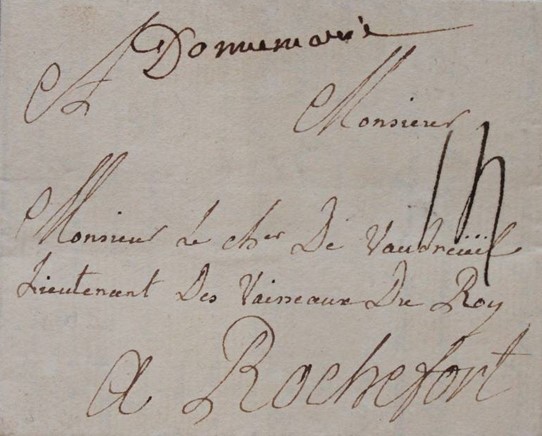 A Donnemarie
Monsieur
Monsieur Le cher De Vaudreüil
Lieutenant Des Vaisseaux Du Roy
a Rochefort